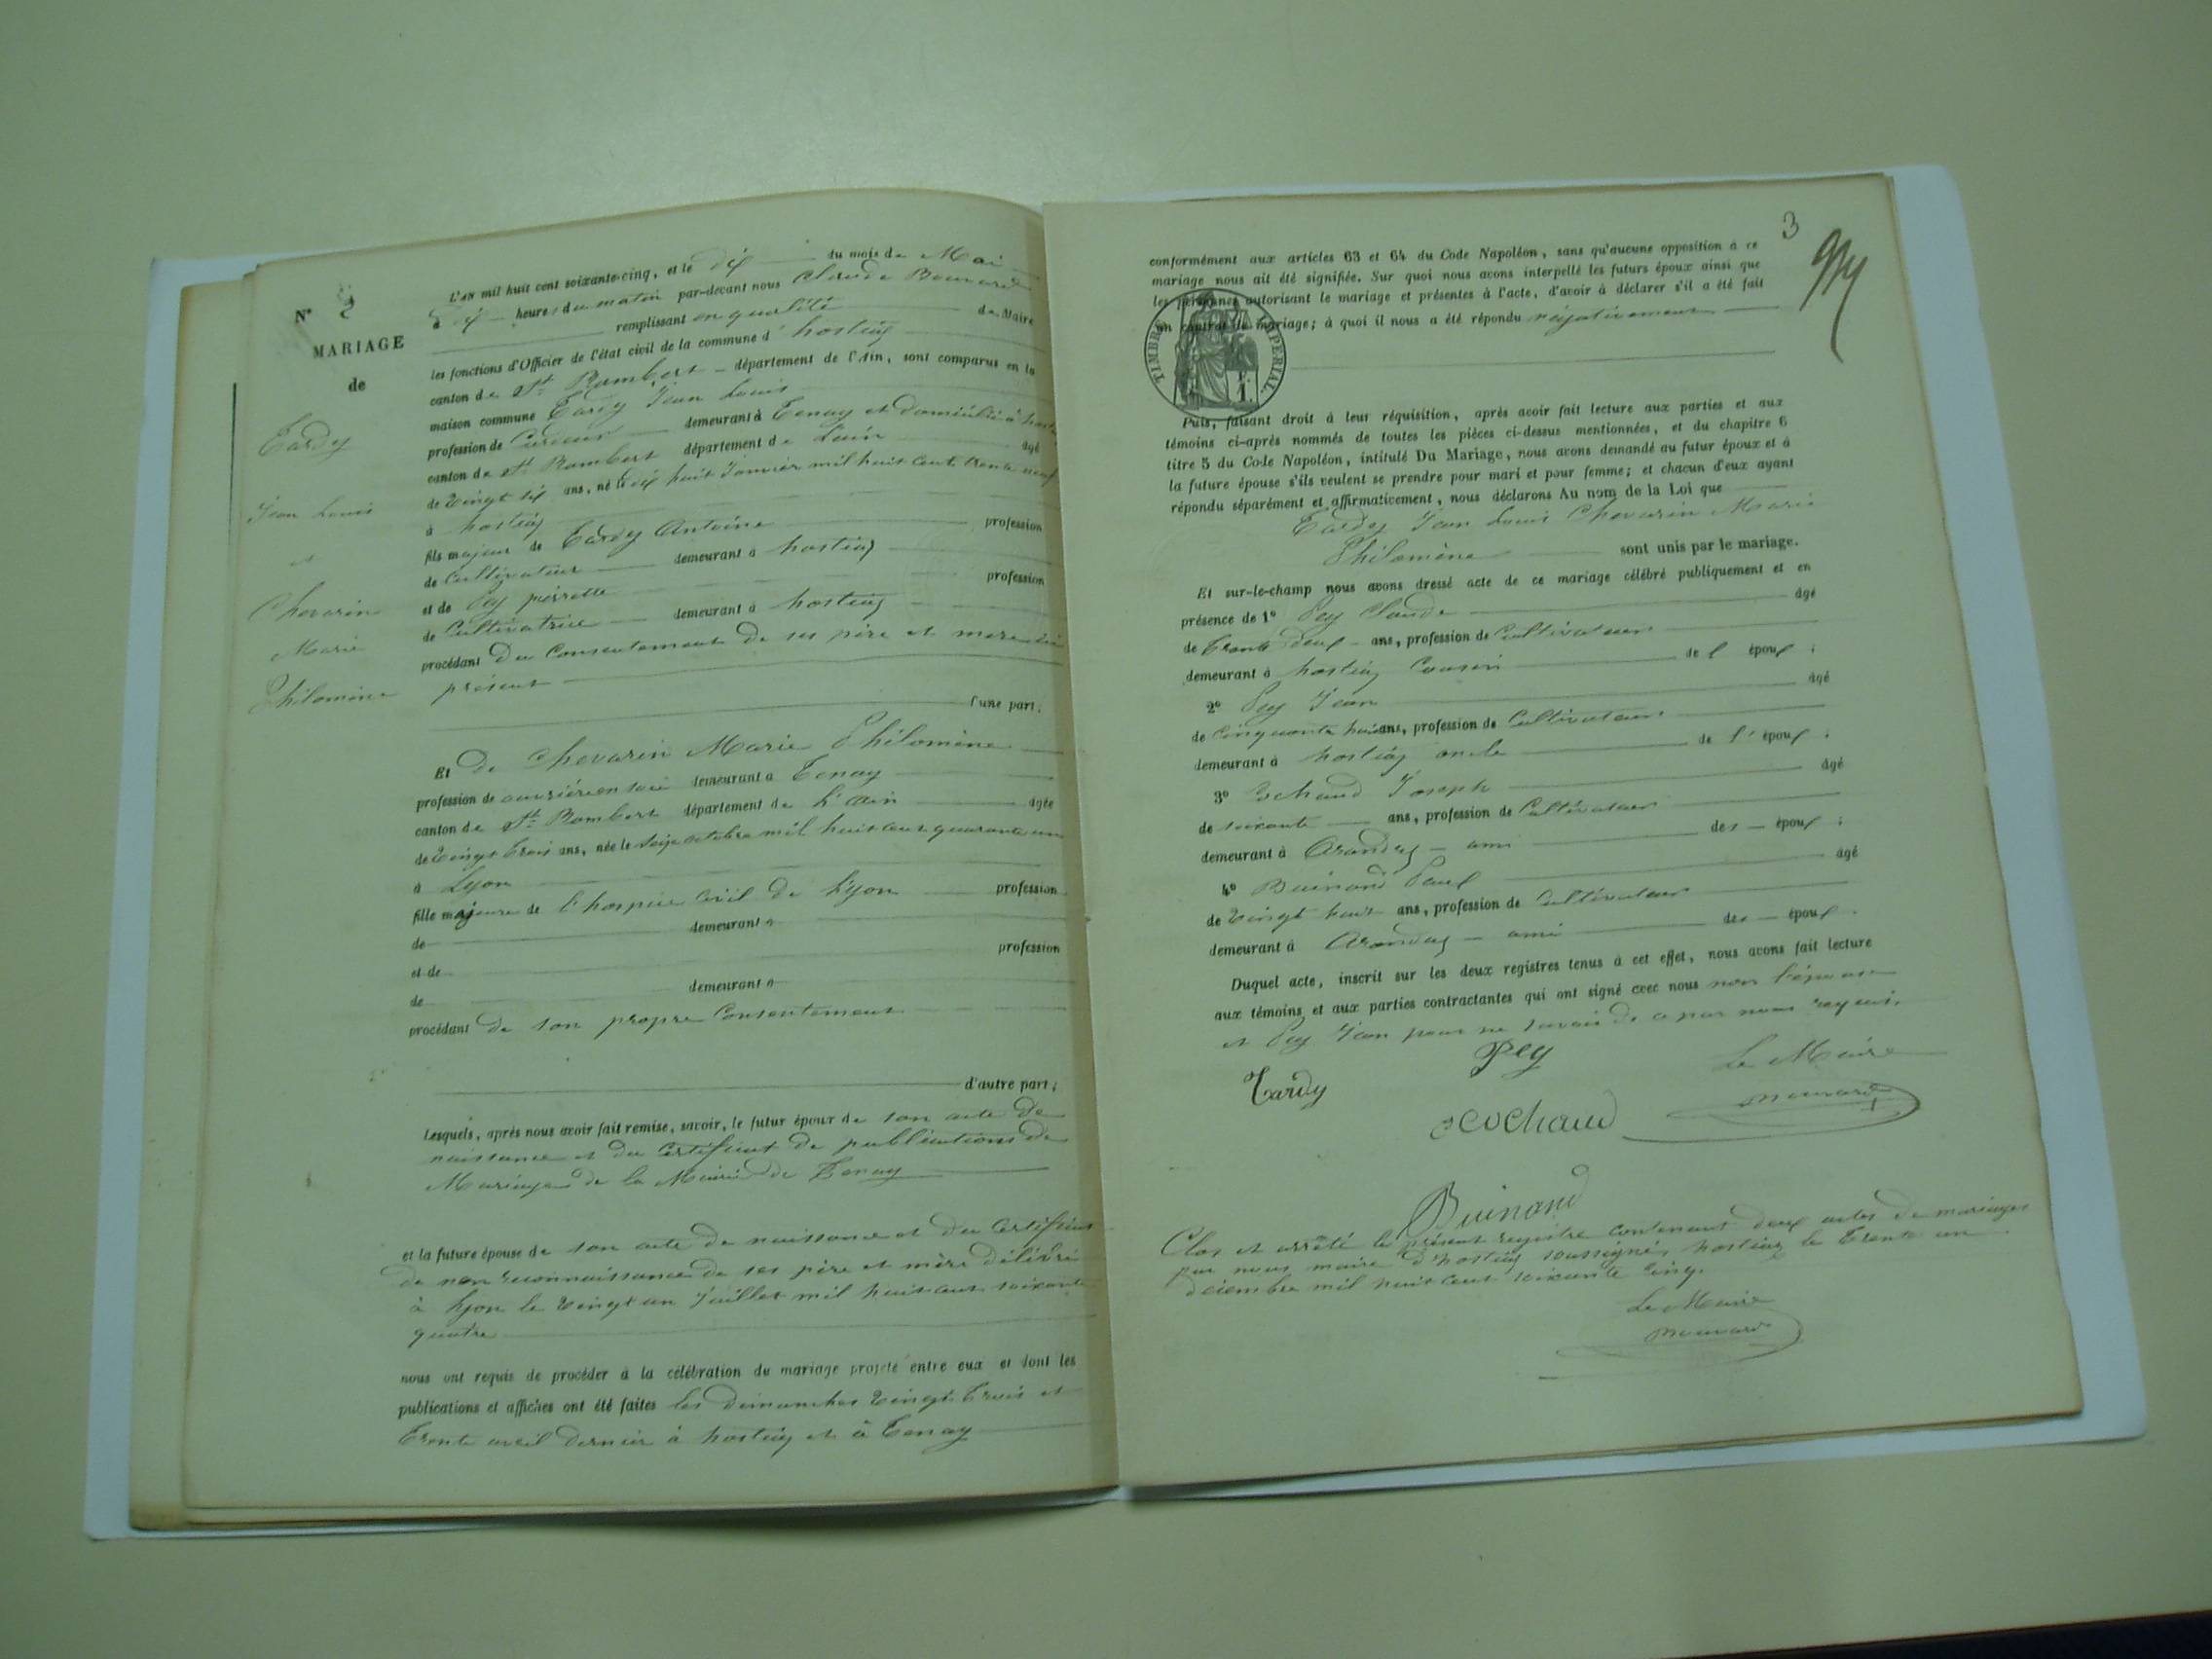 N° 2
MARIAGE
de
Tardy
Jean Louis
et
Chevarin
Marie
Philomène
L'an mil huit cent soixante-cinq, et le dix du mois de Mai
à dix heures du matin par-devant nous Claude
remplissant en qualité de Maire
les fonctions d'Officier de l'état civil de la commune d' hostiaz
canton de St Rambert département de l'Ain, sont comparus en la
maison commune Tardy Jean Louis
profession de demeurant à Tenay et domicilié à
canton de St Rambert département de L'ain âgé
de Vingt six ans, né le dix huit Janvier mil huit cent trente neuf
à hostiaz
fils majeur de Tardy Antoine profession
de Cultivateur demeurant à hostiaz
et de Pey pierrette profession
de Cultivatrice demeurant à hostiaz
procédant du Consentement de ses père et mère ici
présent
l'une part;
Et de Chevarin Marie Philomène
profession de ouvrière en soie demeurant à Tenay
canton de St Rambert département de L'Ain âgée
de Vingt trois ans, née le seize octobre mil huit cent quarante un
à Lyon
fille majeure de l'hospice Civil de Lyon profession
de demeurant à
et de profession
de demeurant à
procédant de son propre Consentement
d'autre part;
Lesquels, après nous avoir fait remise, savoir, le futur époux de son acte de
naissance et du Certificat de publications de
Mariage de la Mairie de Tenay
et la future épouse de son acte de naissance et du Certificat
de non reconnaissance de ses père et mère délivré
à Lyon le Vingt un Juillet mil huit cent soixante
quatre
nous ont requis de procéder à la célébration du mariage projeté entre eux et dont les
publications et affiches ont été faites les dimanches Vingt trois et
Trente avril dernier à hostiaz et à Tenay
3
conformément aux articles 63 et 64 du Code Napoléon, sans qu'aucune opposition à ce
mariage nous ait été signifiée. Sur quoi nous avons interpellé les futurs époux ainsi que
les personnes autorisant le mariage et présentes à l'acte, d'avoir à déclarer s'il a été fait
un contrat de mariage; à quoi il nous a été répondu négativement
TIMBRE IMPERIAL.
Puis, faisant droit à leur réquisition, après avoir fait lecture aux parties et aux
témoins ci-après nommés de toutes les pièces ci-dessus mentionnées, et du chapitre 6
titre 5 du Code Napoléon, intitulé Du Mariage, nous avons demandé au futur époux et à
la future épouse s'ils veulent se prendre pour mari et pour femme; et chacun d'eux ayant
répondu séparément et affirmativement, nous déclarons Au nom de la Loi que
Tardy Jean Louis Chevarin Marie
Philomène sont unis par le mariage.
Et sur-le-champ nous avons dressé acte de ce mariage célébré publiquement et en
présence de 1° Pey Claude âgé
de trente deux ans, profession de Cultivateur
demeurant à hostiaz Cousin de l époux;
2° Pey Jean âgé
de Cinquante huit ans, profession de Cultivateur
demeurant à hostiaz oncle de l' époux;
3° Cochaud Joseph âgé
de soixante ans, profession de Cultivateur
demeurant à Arandas ami des époux;
4° Buinand Paul âgé
de Vingt huit ans, profession de Cultivateur
demeurant à Arandas ami des époux.
Duquel acte, inscrit sur les deux registres tenus à cet effet, nous avons fait lecture
aux témoins et aux parties contractantes qui ont signé avec nous non l'épouse
et Pey Jean pour ne savoir de ce par nous requis.
Tardy
Pey
Le Maire
Cochaud
Buinand
Clos et arrêté le présent registre contenant deux actes de mariages
par nous maire d'hostiaz soussigné, hostiaz le trente un
décembre mil huit cent soixante cinq.
Le Maire